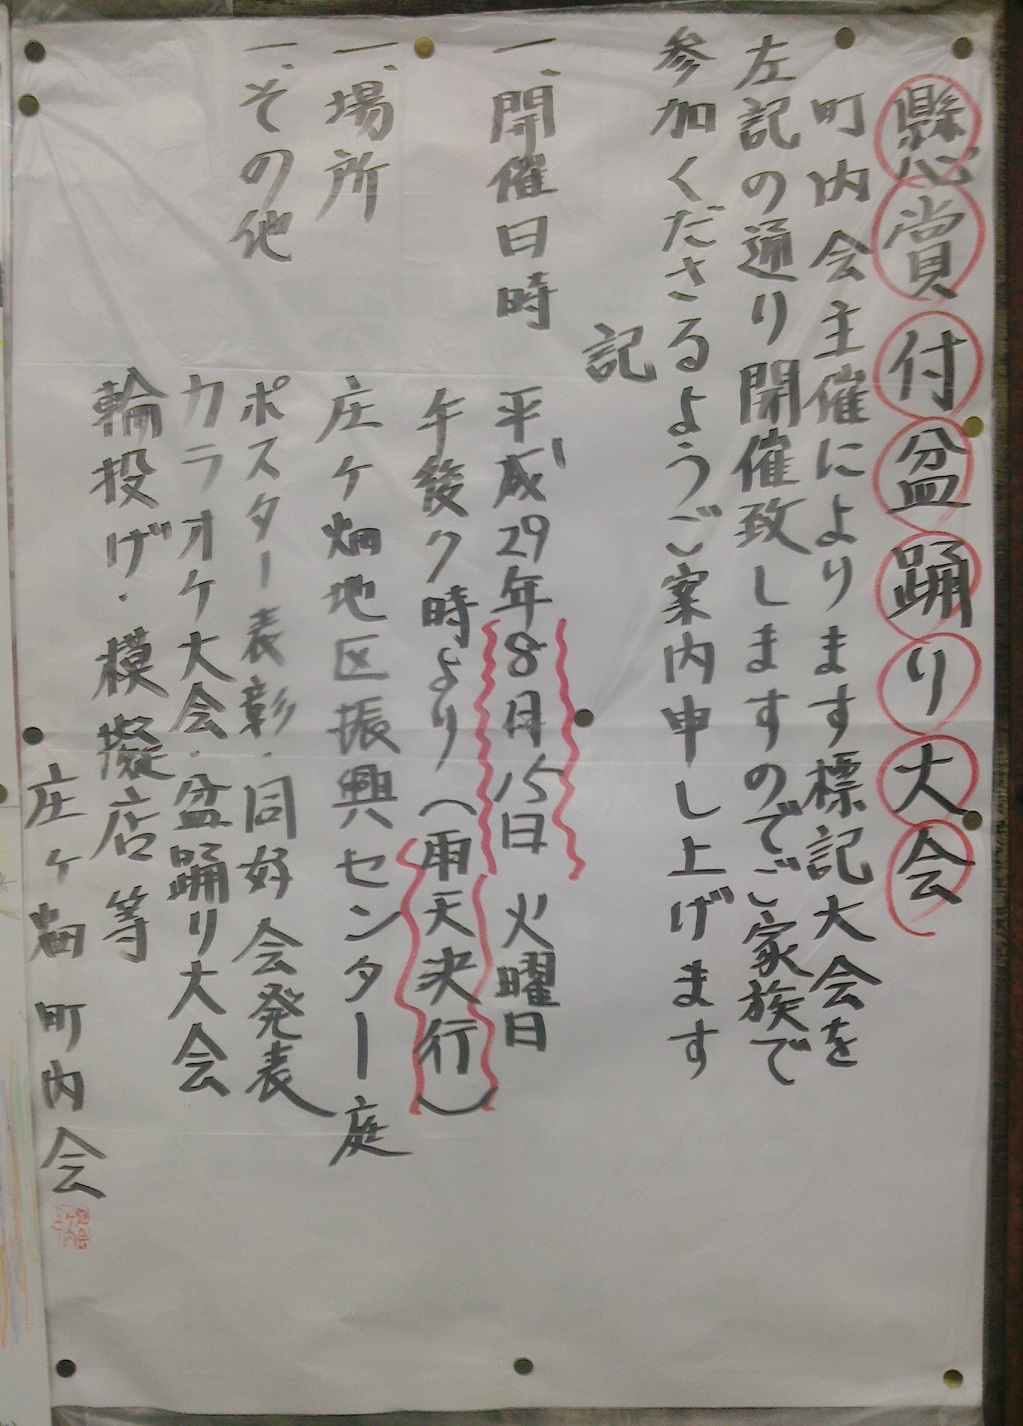 懸賞付盆踊り大会
町内会主催によります標記大会を
左記の通り開催致しますのでご家族で
参加くださるようご案内申し上げます
記
一、開催日時 平成29年8月15日 火曜日
午後7時より(雨天決行)
一、場所 庄ヶ畑地区振興センター庭
一、その他 ポスター表彰・同好会発表
カラオケ大会・盆踊り大会
輪投げ・模擬店等
庄ヶ畑町内会